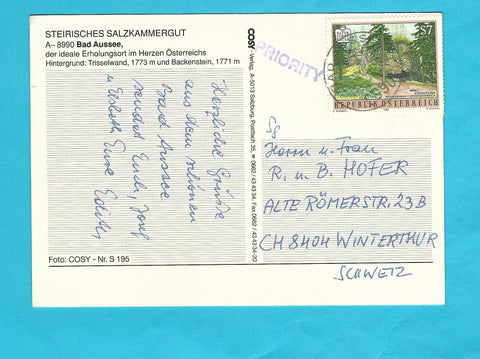 STEIRISCHES SALZKAMMERGUT
A– 8990 Bad Aussee,
der ideale Erholungsort im Herzen Österreichs
Hintergrund: Trisselwand, 1773 m und Backenstein, 1771 m
Herzliche Grüsse
aus dem schönen
Bad Aussee
sendet Euch, Josef
u Elsbeth Eure Edith
Foto: COSY - Nr. S 195
COSY-Verlag, A-5013 Salzburg, Postfach 35, 0662/43 43 34, Fax 0662/43 43 34-20
PRIORITY
BAD
S7
REPUBLIK ÖSTERREICH
Herrn u. Frau
R. u. B. HOFER
ALTE RÖMERSTR. 23B
CH 8404 WINTERTHUR
SCHWEIZ